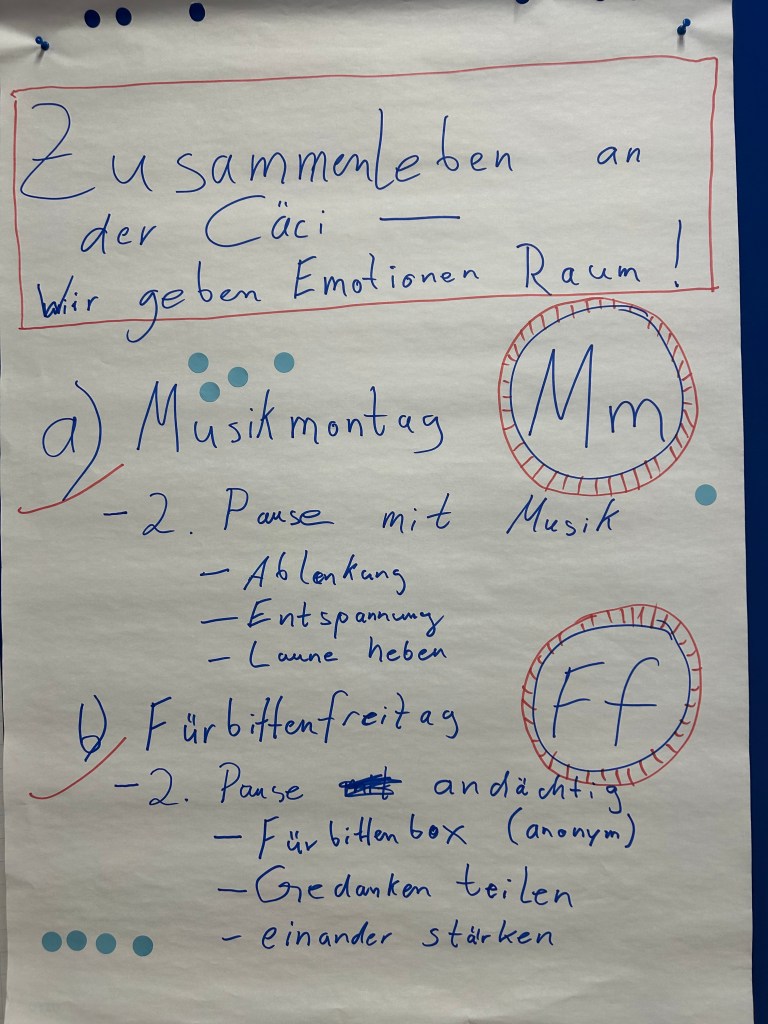 Zusammenleben an
der Cäci —
Wir geben Emotionen Raum!
a) Musikmontag
Mm
- 2. Pause mit Musik
- Ablenkung
- Entspannung
- Laune heben
b) Fürbittenfreitag
Ff
- 2. Pause andächtig
- Fürbittenbox (anonym)
- Gedanken teilen
- einander stärken